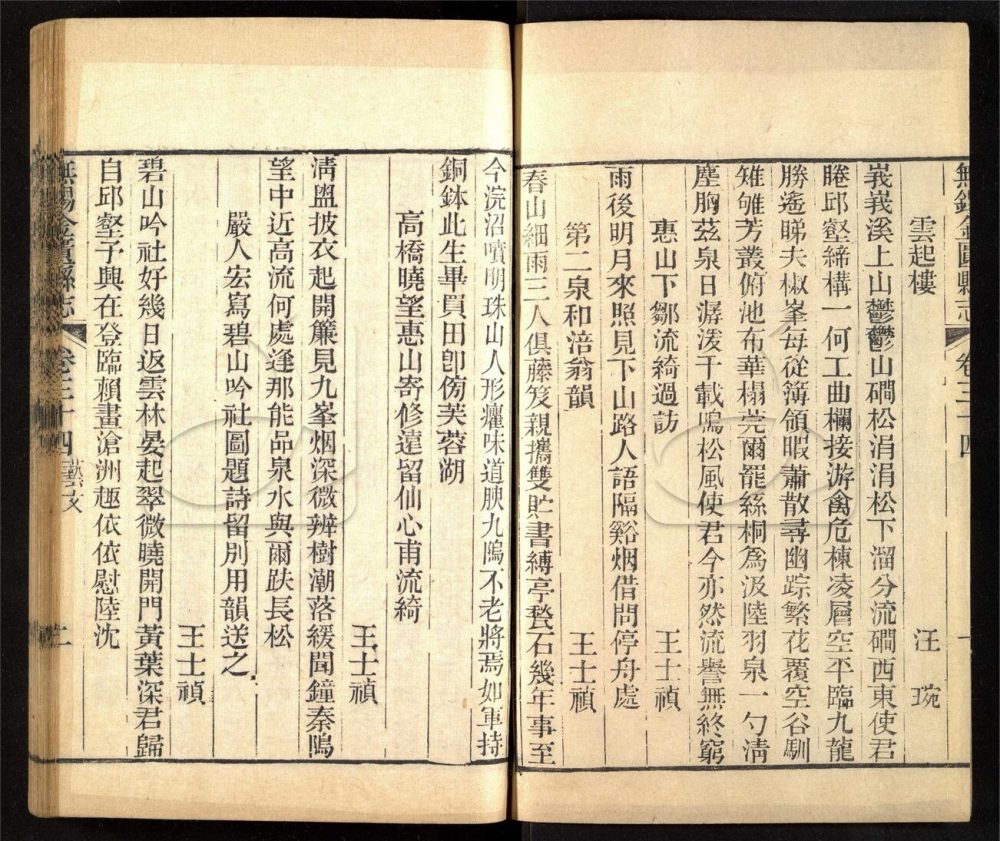 無錫金匱縣志 卷三十四
雲起樓 汪琬
峩峩溪上山鬱鬱山磵松涓涓松下溜分流磵西東使君
睠邱壑締構一何工曲欄接游禽危棟凌層空平臨九龍
勝遙睇夫椒峯每從簿領暇蕭散尋幽踪繁花覆空谷馴
雉雊芳叢俯池布華榻莞爾罷絲桐爲汲陸羽泉一勺淸
塵胸茲泉日潺湲千載鳴松風使君今亦然流譽無終窮
惠山下鄒流綺過訪 王士禎
雨後明月來照見下山路人語隔谿烟借問停舟處
第二泉和涪翁韻 王士禎
春山細雨三人俱藤笈親攜雙貯書縛亭甃石幾年事至
今浣沼噴明珠山人形癯味道腴九鳴不老將焉如軍持
銅鉢此生畢買田卽傍芙蓉湖
高橋曉望惠山寄修遠留仙心甫流綺
王士禎
淸盥披衣起開簾見九峯烟深微辨樹潮落緩聞鐘秦隝
望中近高流何處逢那能品泉水與爾趺長松
嚴人宏寫碧山吟社圖題詩留別用韻送之
王士禎
碧山吟社好幾日返雲林晏起翠微曉開門黃葉深君歸
自邱壑予興在登臨賴畫滄洲趣依依慰陸沈
無錫金匱縣志 卷三十四 藝文 二